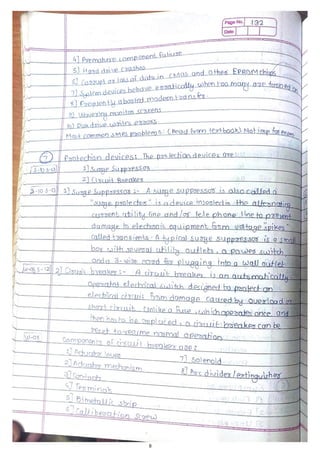 Page No. 132
Date
4] Premature component failure
5] Hard drive crashes
6] Corrupt or loss of data in CMOS and other EPROM chips
7] System devices behave erratically when too many are turned on
8] Frequently aborted modem transfer
9] Wavering monitor screens
10] Disk drive write errors
Most common stress problems : (Read from textbook) Not imp for exam
7 Protection devices: The protection devices are
1] Surge Suppressor
2] Circuit Breaker
1] Surge Suppressor :- A surge suppressor is also called a
"surge protector" is a device inserted in the alternating
current utility line and/or telephone line to prevent
damage to electronic equipment from voltage spikes
called transients. A typical surge suppressor is a small
box with several utility outlets, a power switch
and a 3-wire cord for plugging into a wall outlet
2] Circuit breaker :- A circuit breaker is an automatically
operated electrical switch designed to protect an
electrical circuit from damage caused by overload or
short circuit. Unlike a fuse, which operates once and
then has to be replaced, a circuit breaker can be
reset to resume normal operation
Components of circuit breaker are :
1] Actuator lever 7] Solenoid
2] Actuator mechanism 8] Arc divider/extinguisher
3] Contacts
4] Terminals
5] Bimetallic strip
6] Calliberation screw